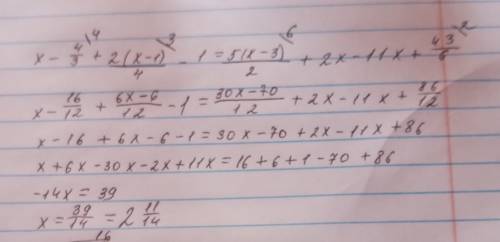 x - 4/3 \4 + 2(x-1)/4 \3 - 1 = 5(x-3)/2 \6 + 2x - 11x + 43/6 \2
x - 16/12 + 6x-6/12 - 1 = 30x-70/12 + 2x - 11x + 86/12
x - 16 + 6x - 6 - 1 = 30x - 70 + 2x - 11x + 86
x + 6x - 30x - 2x + 11x = 16 + 6 + 1 - 70 + 86
-14x = 39
x = 39/14 = 2 11/14
16